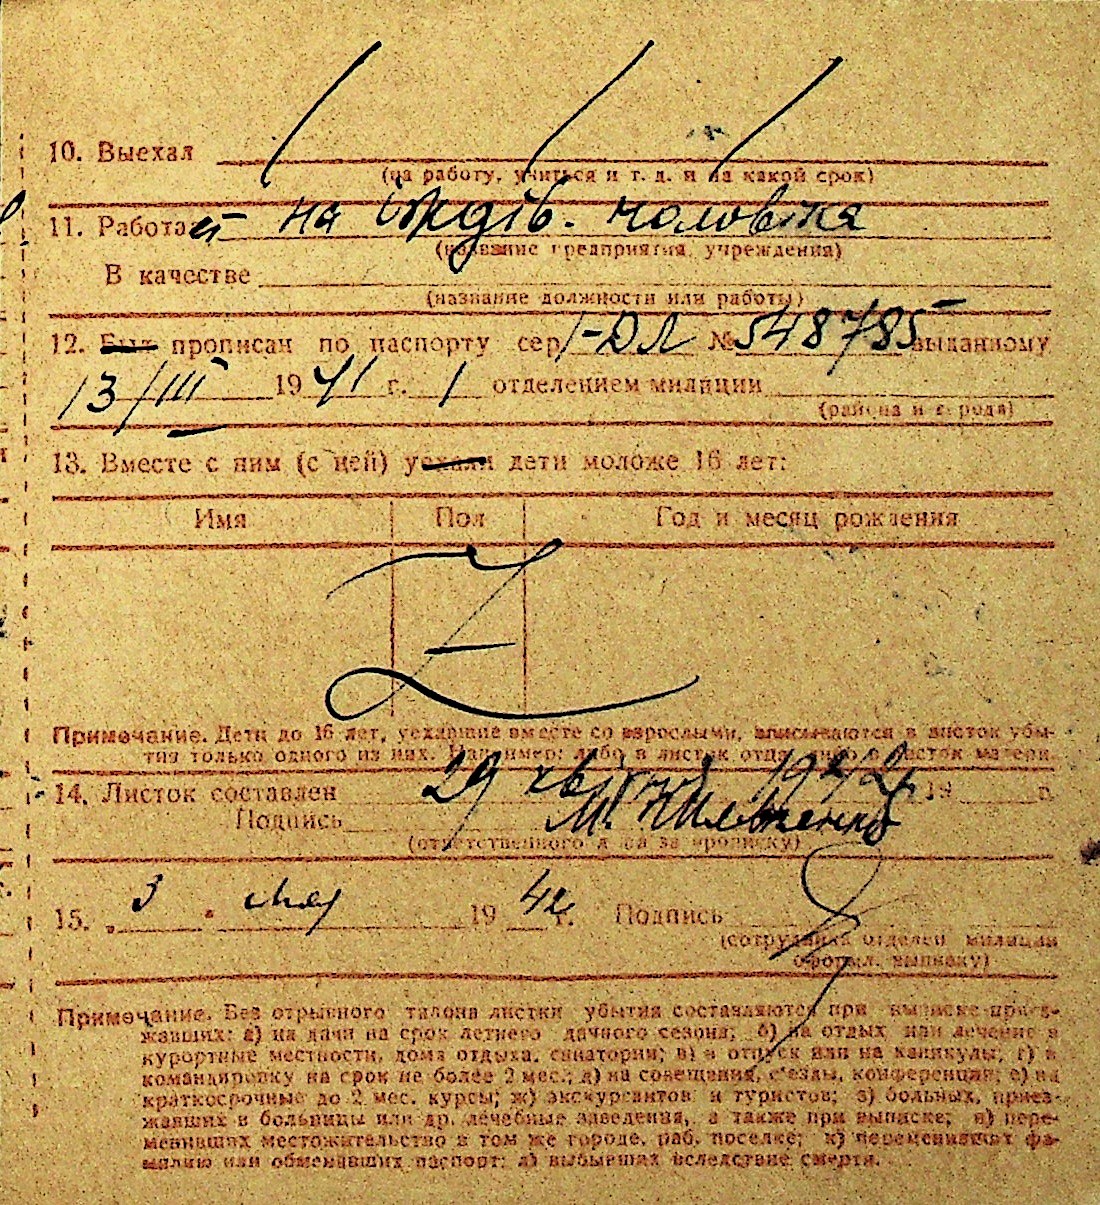 10. Выехал
(на работу, учиться и т. д. и на какой срок)
11. Работает на іждів. чоловіка
(название предприятия, учреждения)
В качестве
(название должности или работы)
12. Был прописан по паспорту сер. І-ДЛ № 548785 выданному
13/III 1941 г. 1 отделением милиции
(района и города)
13. Вместе с ним (с ней) уехали дети моложе 16 лет:
Имя Пол Год и месяц рождения
Z
Примечание. Дети до 16 лет, уехавшие вместе со взрослыми, вписываются в листок убы-
тия только одного из них. Например: либо в листок отца, либо в листок матери.
14. Листок составлен 29 квітня 1942 19 г.
Подпись М.
(ответственного лица за прописку)
15. „3" мая 1942 г. Подпись
(сотрудника отделен. милиции
оформл. выписку)
Примечание. Без отрывного талона листки убытия составляются при выписке приез-
жавших: а) на дачи на срок летнего дачного сезона; б) на отдых или лечение в
курортные местности, дома отдыха, санатории; в) в отпуск или на каникулы; г) в
командировку на срок не более 2 мес.; д) на совещания, съезды, конференции; е) на
краткосрочные до 2 мес. курсы; ж) экскурсантов и туристов; з) больных, приез-
жавших в больницы или др. лечебные заведения, а также при выписке; и) пере-
менивших местожительство в том же городе, раб. поселке; к) переменивших фа-
милию или обменявших паспорт; л) выбывших вследствие смерти.